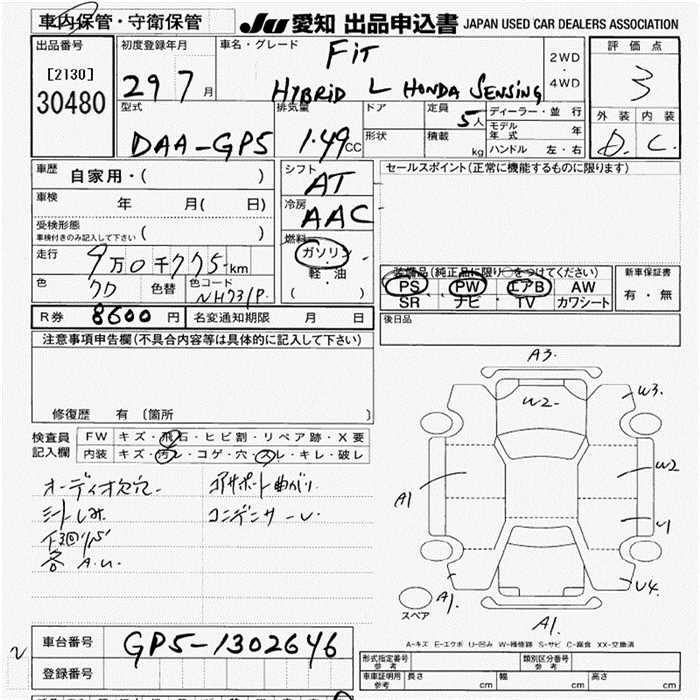 車内保管・守衛保管
JU 愛知 出品申込書 JAPAN USED CAR DEALERS ASSOCIATION
出品番号
[2130]
30480
初度登録年月
29 7 月
車名・グレード
FiT
HYBRiD L HONDA SENSiNG
2WD
・
4WD
評価点
3
外装 内装
D. C.
型式
DAA-GP5
排気量
1.49 CC
ドア
形状
定員
5人
積載
kg
ディーラー・並行
モデル年式 年
ハンドル 左・右
車歴
自家用・( )
車検
年 月( 日)
受検形態
車検付きのみ記入して下さい ( )
走行
9万0千775km
色
クロ
色替
色コード
NH731P.
シフト
AT
冷房
AAC
燃料
ガソリン
・
軽油
( )
セールスポイント(正常に機能するものに限ります)
装備品(純正品に限り○をつけてください)
PS PW エアB AW
SR ナビ TV カワシート
新車保証書
有・無
後日品
R券 8600 円 名変通知期限 月 日
注意事項申告欄(不具合内容等は具体的に記入して下さい)
修復歴 有〔箇所 〕
検査員
記入欄
FW キズ・飛石・ヒビ割・リペア跡・X要
内装 キズ・汚れ・コゲ・穴・スレ・キレ・破レ
オーディオ欠品
コアサポート曲がり
シートしみ
コンデンサーU
下廻りS
各 A.U.
A3.
W3.
W2-
W2
A1
U1
U4.
A1.
A1.
スペア
A-キズ E-エクボ U-凹み W-補修跡 S-サビ C-腐食 XX-交換済
2
車台番号 GP5-1302646
登録番号
形式指定番号
参考
類別区分番号
参考
車車証明用
参考
長さ cm 幅 cm 高さ cm